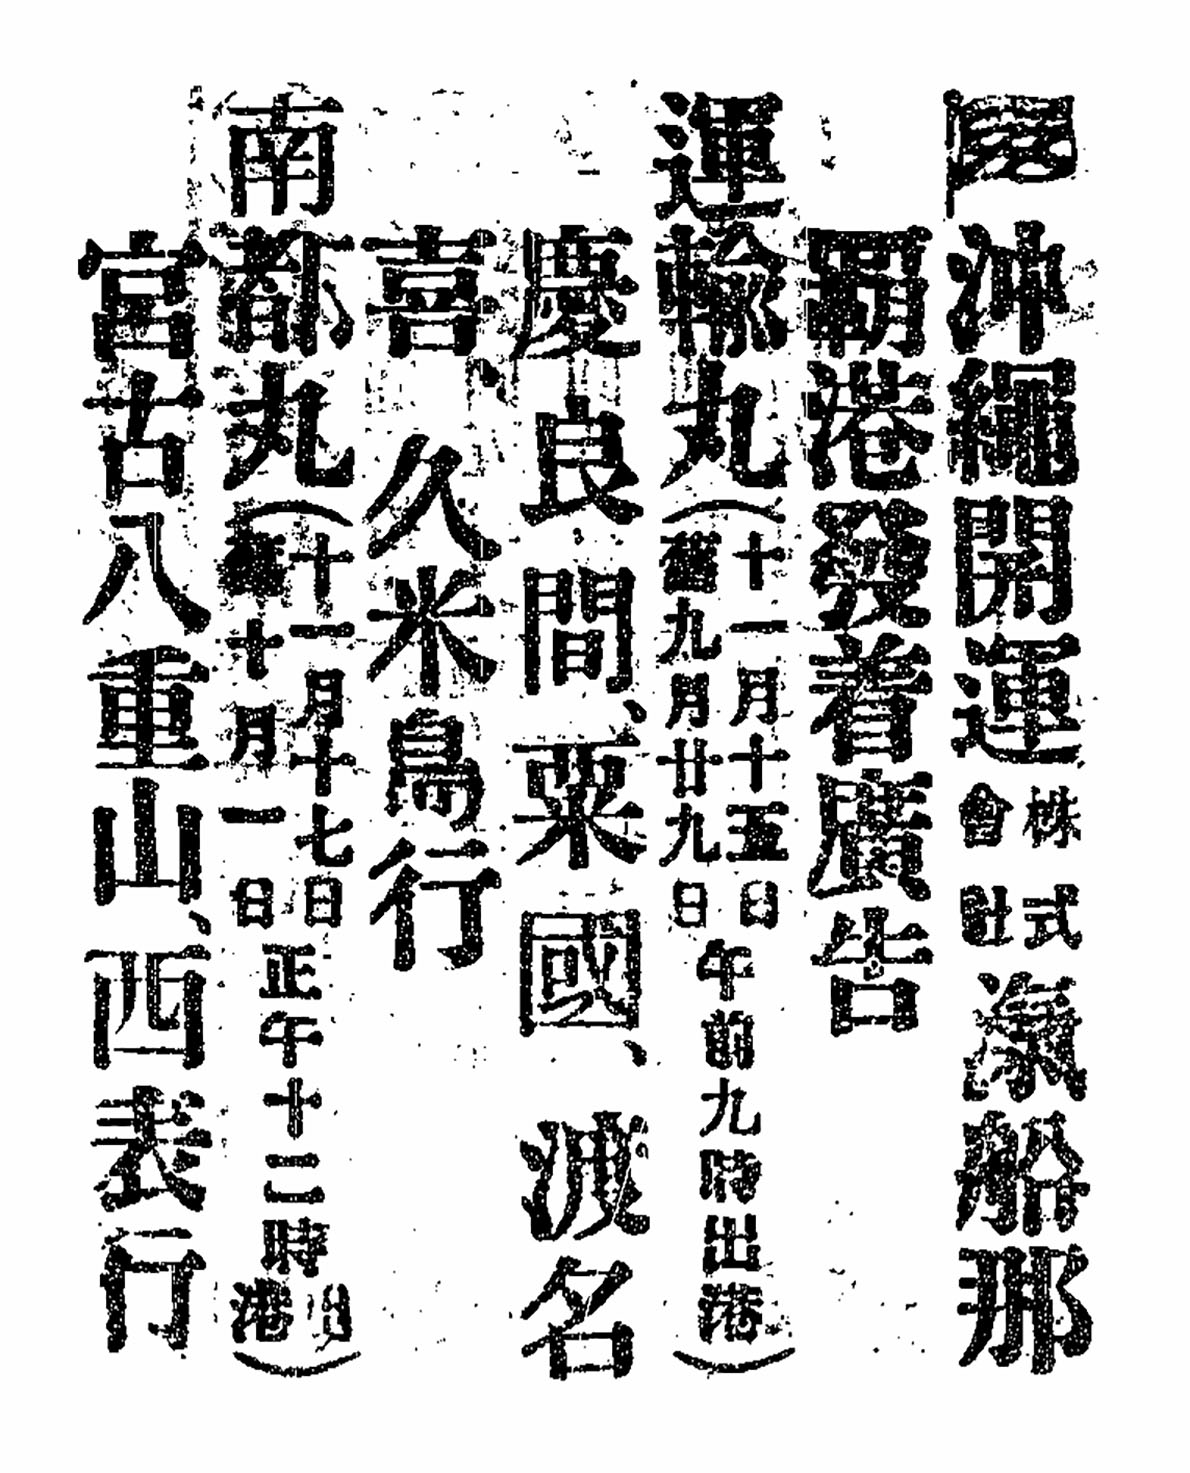 沖繩開運株式會社滊船那
覇港發着廣告
運輸丸(十一月十五日舊九月廿九日午前九時出港)
慶良間、粟國、渡名
喜、久米島行
南都丸(十一月十七日舊十月一日正午十二時出港)
宮古八重山、西表行